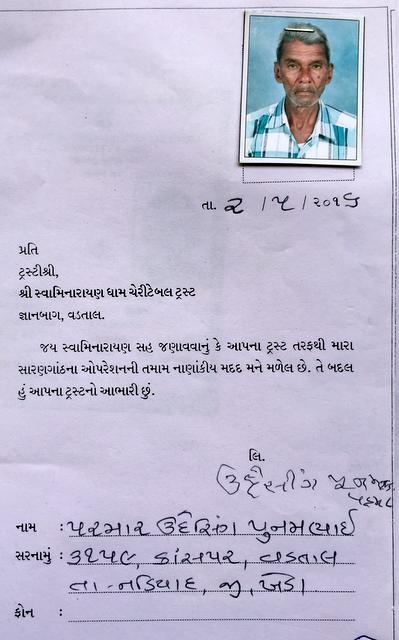 તા. ૨ /૫ /૨૦૧૬
પ્રતિ
ટ્રસ્ટીશ્રી,
શ્રી સ્વામિનારાયણ ધામ ચેરીટેબલ ટ્રસ્ટ
જ્ઞાનબાગ, વડતાલ.
જય સ્વામિનારાયણ સહ જણાવવાનું કે આપના ટ્રસ્ટ તરફથી મારા
સારણગાંઠના ઓપરેશનની તમામ નાણાંકીય મદદ મને મળેલ છે. તે બદલ
હું આપના ટ્રસ્ટનો આભારી છું.
લિ.
નામ : પરમાર ઉદેસિંગ પુનમભાઈ
સરનામું : ૩૧૫૯, કાંસપર, વડતાલ
તા-નડિયાદ, જી, ખેડા
ફોન :